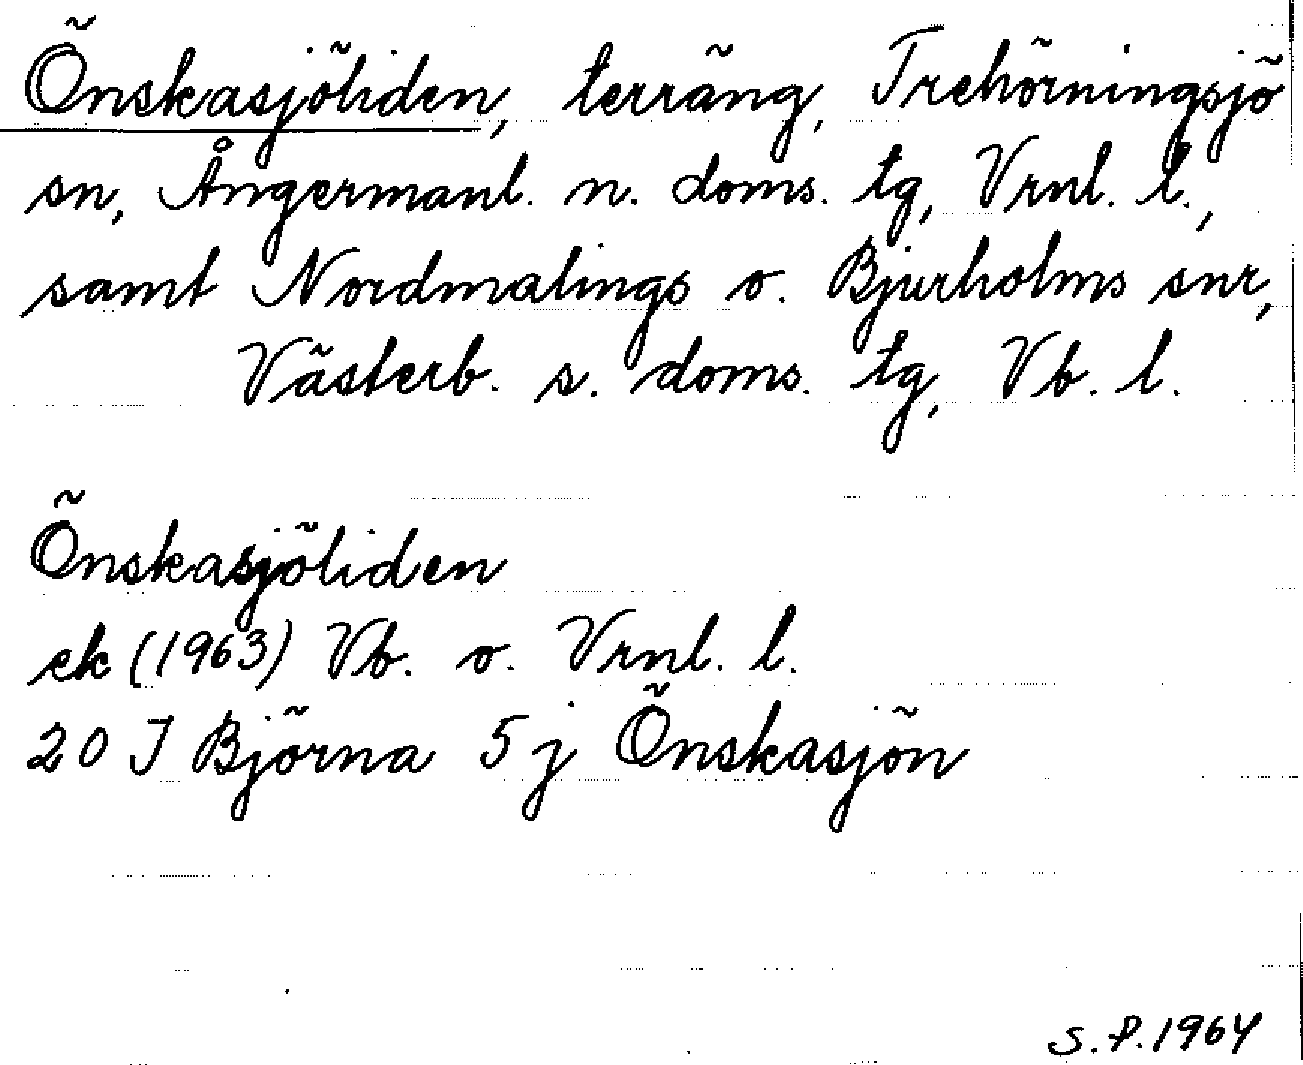 Önskasjöliden, terräng, Trehörningsjö
sn, Ångermanl. n. doms. tg, Vrnl. l.,
samt Nordmalings o. Bjurholms snr,
Västerb. s. doms. tg, Vb. l.
Önskasjöliden
ek (1963) Vb. o. Vrnl. l.
20 J Björna 5 j Önskasjön
S.P. 1964